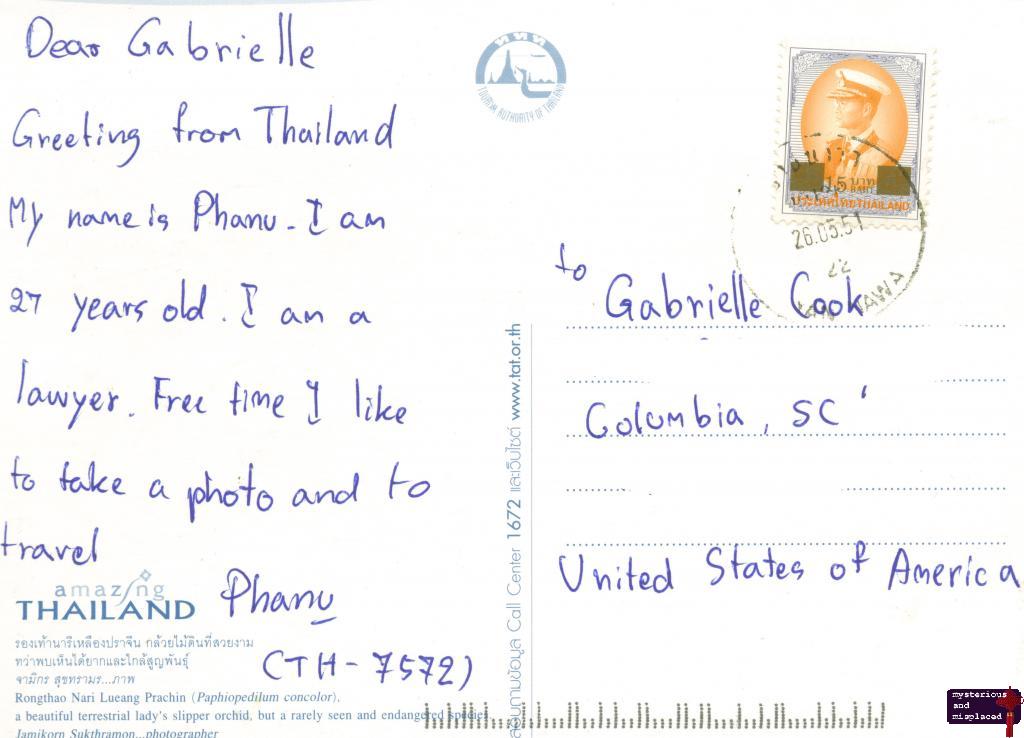 Dear Gabrielle
Greeting from Thailand
My name is Phanu. I am
27 years old. I am a
lawyer. Free time I like
to take a photo and to
travel
Phanu
(TH-7572)
amazing
THAILAND
รองเท้านารีเหลืองปราจีน กล้วยไม้ดินที่สวยงาม
ทว่าพบเห็นได้ยากและใกล้สูญพันธุ์
จามิกร สุขทรามร...ภาพ
Rongthao Nari Lueang Prachin (Paphiopedilum concolor),
a beautiful terrestrial lady's slipper orchid, but a rarely seen and endangered species.
Jamikorn Sukthramon...photographer
ททท
TOURISM AUTHORITY OF THAILAND
สอบถามข้อมูล Call Center 1672 และเว็บไซต์ www.tat.or.th
15 บาท
BAHT
ประเทศไทย THAILAND
26.05.51
22
to
Gabrielle Cook
Columbia, SC
United States of America
mysterious
and
misplaced